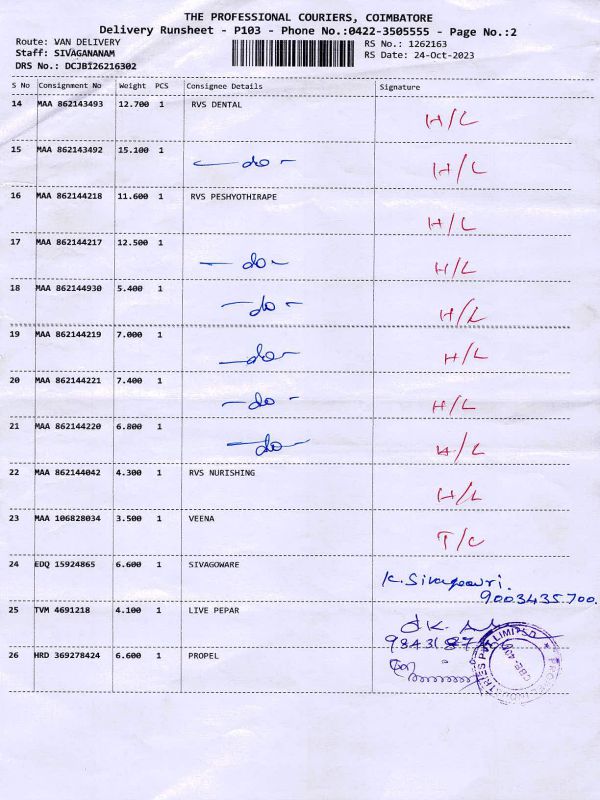 THE PROFESSIONAL COURIERS, COIMBATORE
Delivery Runsheet - P103 - Phone No.:0422-3505555 - Page No.:2
Route: VAN DELIVERY
Staff: SIVAGANANAM
DRS No.: DCJBI26216302
RS No.: 1262163
RS Date: 24-Oct-2023
S No Consignment No Weight PCS Consignee Details Signature
14 MAA 862143493 12.700 1 RVS DENTAL H/L
15 MAA 862143492 15.100 1 -do- H/L
16 MAA 862144218 11.600 1 RVS PESHYOTHIRAPE H/L
17 MAA 862144217 12.500 1 -do- H/L
18 MAA 862144930 5.400 1 -do- H/L
19 MAA 862144219 7.000 1 -do- H/L
20 MAA 862144221 7.400 1 -do- H/L
21 MAA 862144220 6.800 1 -do- H/L
22 MAA 862144042 4.300 1 RVS NURISHING H/L
23 MAA 106828034 3.500 1 VEENA T/C
24 EDQ 15924865 6.600 1 SIVAGOWARE K. Sivagowri.
9003435700.
25 TVM 4691218 4.100 1 LIVE PEPAR
26 HRD 369278424 6.600 1 PROPEL
LIMITED